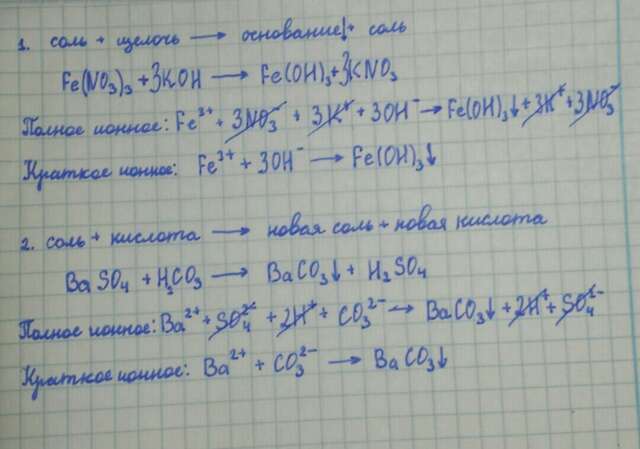 1. соль + щелочь → основание↓ + соль
Fe(NO₃)₃ + 3KOH → Fe(OH)₃ + 3KNO₃
Полное ионное: Fe³⁺ + 3NO₃⁻ + 3K⁺ + 3OH⁻ → Fe(OH)₃↓ + 3K⁺ + 3NO₃⁻
Краткое ионное: Fe³⁺ + 3OH⁻ → Fe(OH)₃↓
2. соль + кислота → новая соль + новая кислота
BaSO₄ + H₂CO₃ → BaCO₃↓ + H₂SO₄
Полное ионное: Ba²⁺ + SO₄²⁻ + 2H⁺ + CO₃²⁻ → BaCO₃↓ + 2H⁺ + SO₄²⁻
Краткое ионное: Ba²⁺ + CO₃²⁻ → BaCO₃↓